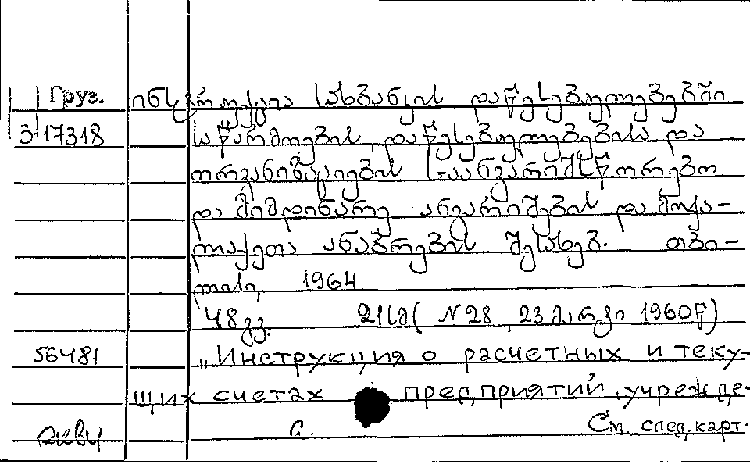 Груз. ინსტრუქცია სახბანკის დაწესებულებებში
3-17318 საწარმოების, დაწესებულებებისა და
ორგანიზაციების საანგარიშსწორებო
და მიმდინარე ანგარიშების და მოქა-
ლაქეთა ანაბრების შესახებ. თბი-
ლისი, 1964
48 გვ. 21სმ (N28, 23 მარტი 1960წ)
56481 „Инструкция о расчетных и теку-
щих счетах предприятий, учрежде-
См. след. карт.